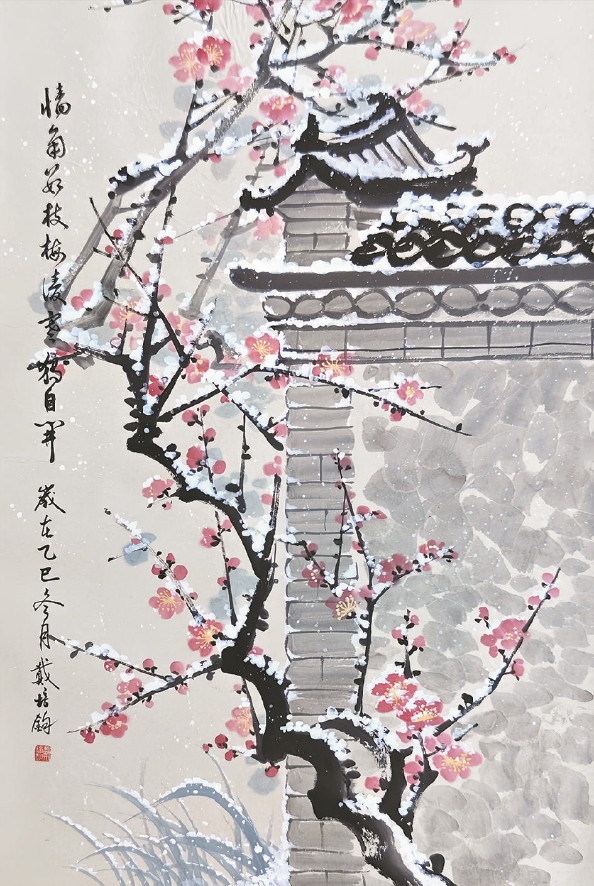 墙角数枝梅凌寒独自开 岁在乙巳冬月戴培钧